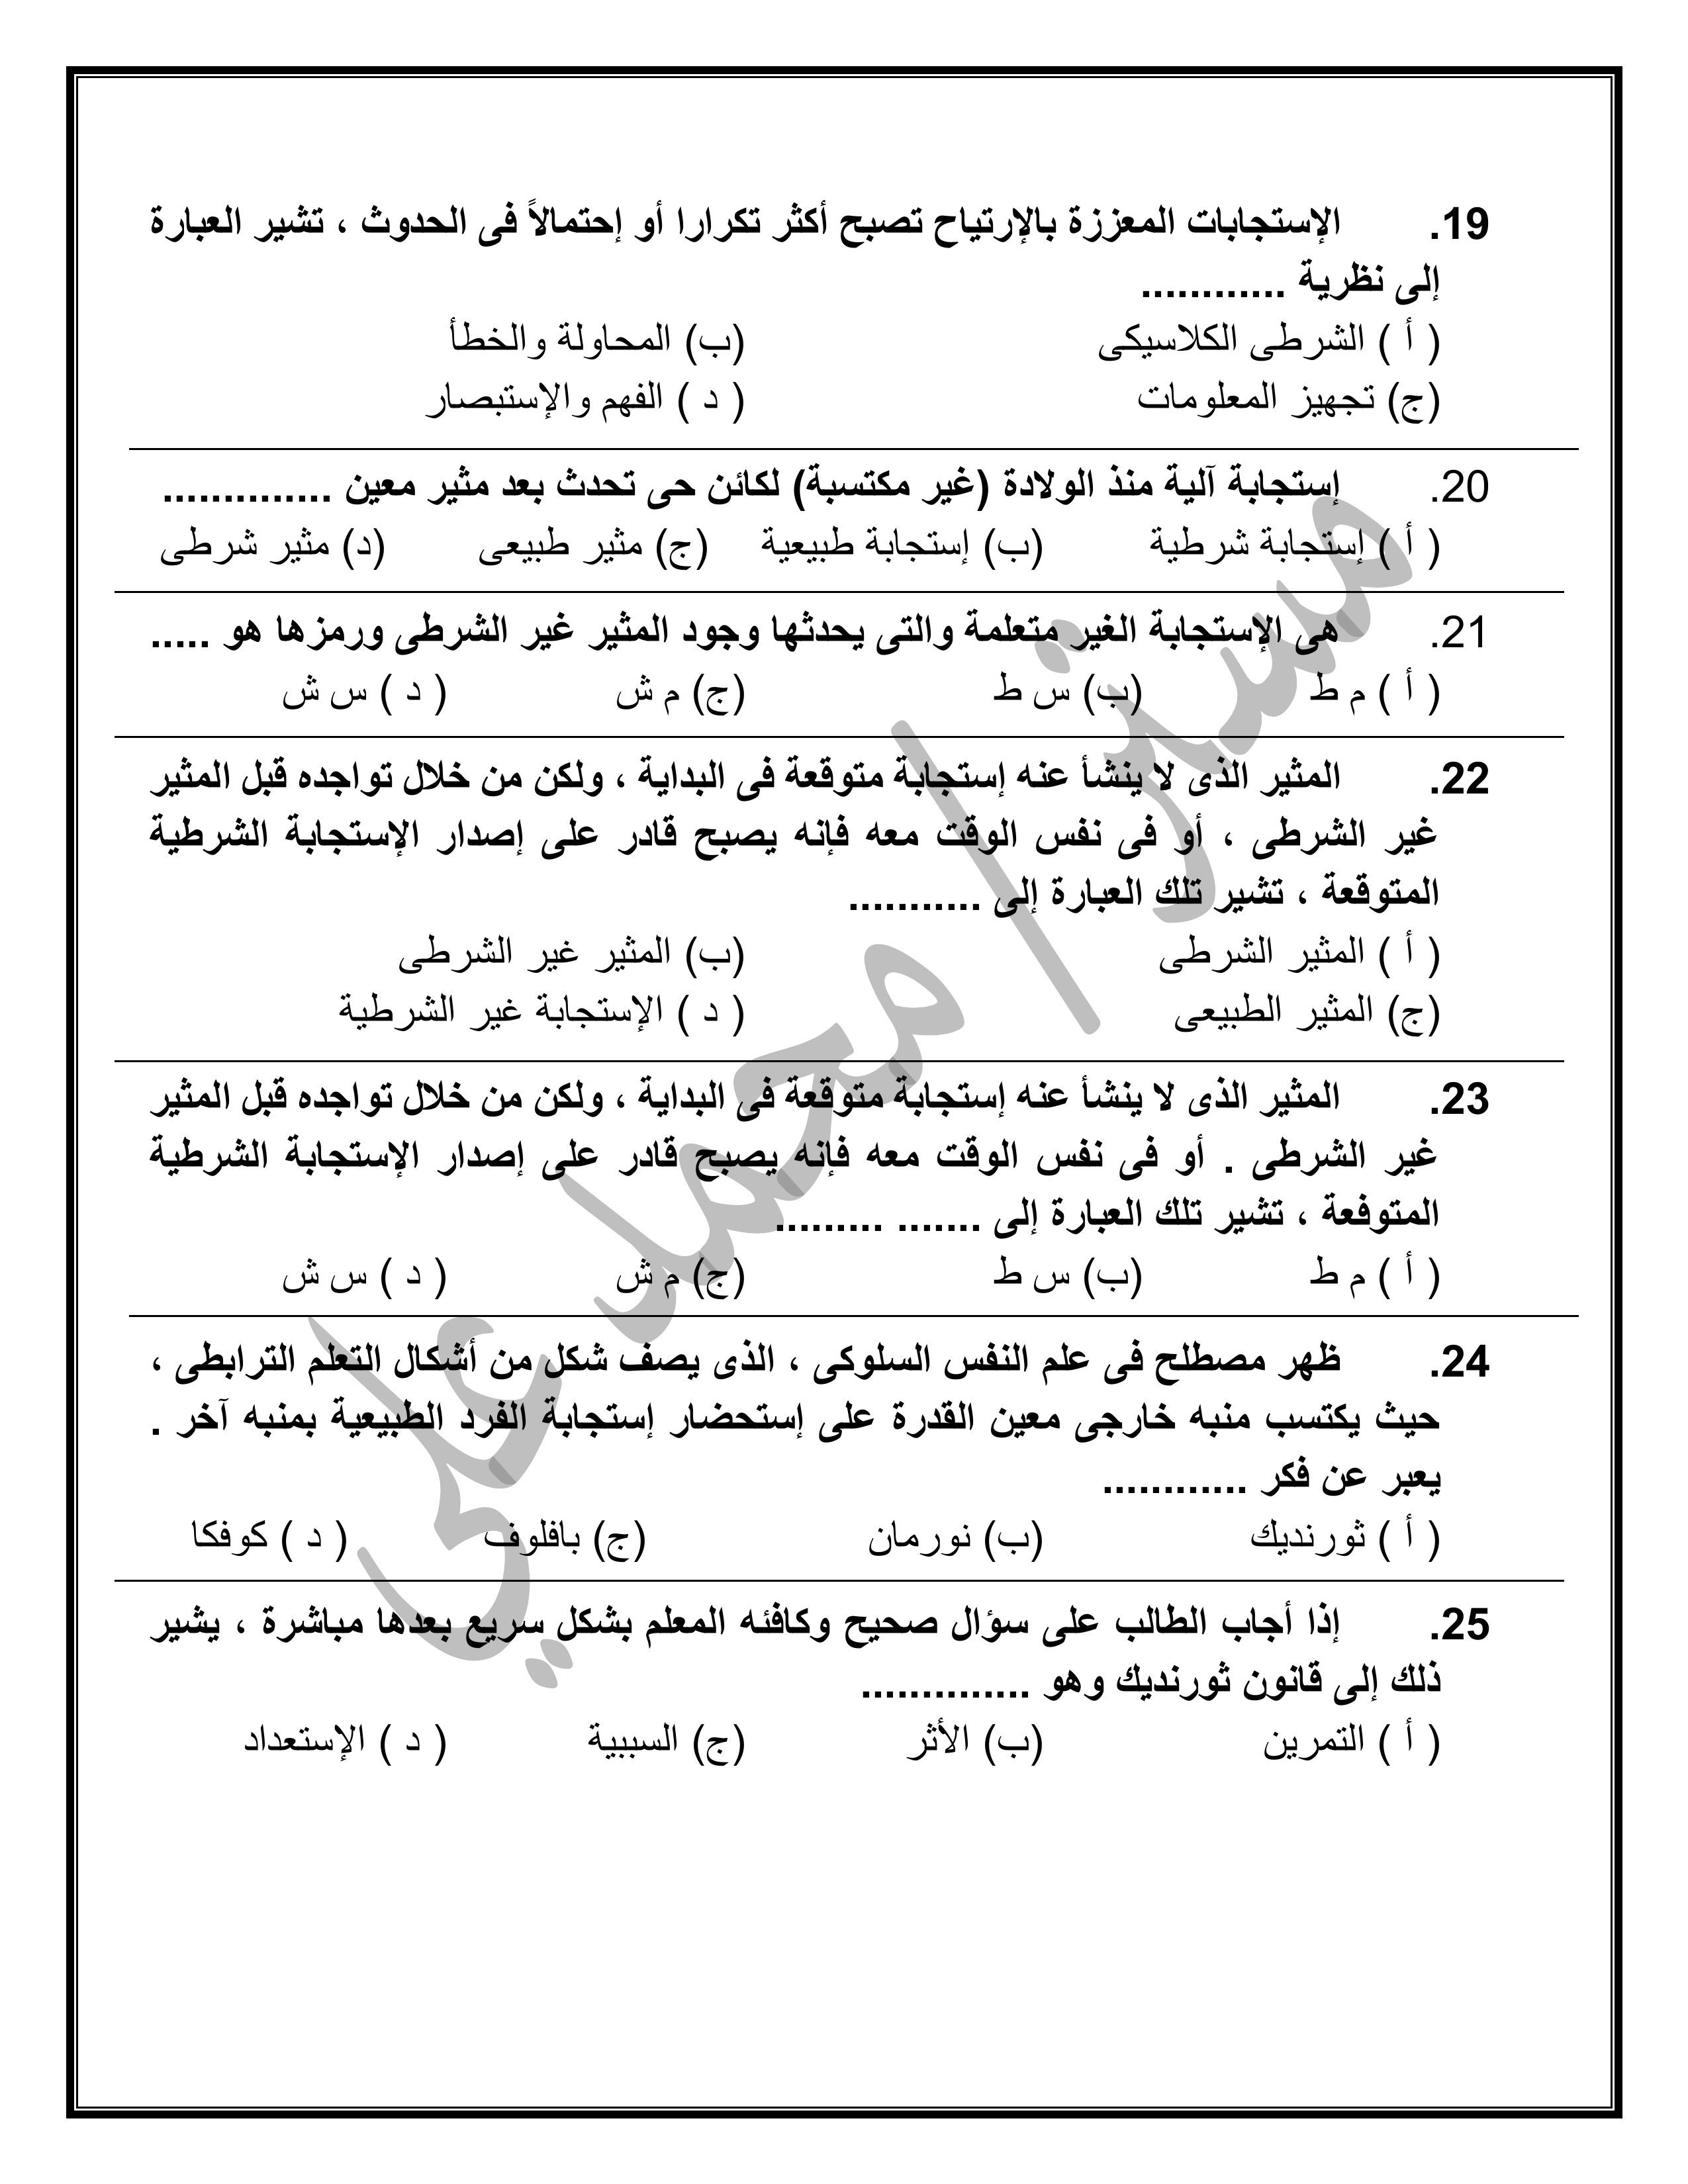 19. الإستجابات المعززة بالإرتياح تصبح أكثر تكرارا أو إحتمالاً فى الحدوث ، تشير العبارة
إلى نظرية ............
( أ ) الشرطى الكلاسيكى (ب) المحاولة والخطأ
(ج) تجهيز المعلومات ( د ) الفهم والإستبصار
20. إستجابة آلية منذ الولادة (غير مكتسبة) لكائن حى تحدث بعد مثير معين ..............
( أ ) إستجابة شرطية (ب) إستجابة طبيعية (ج) مثير طبيعى (د) مثير شرطى
21. هى الإستجابة الغير متعلمة والتى يحدثها وجود المثير غير الشرطى ورمزها هو .....
( أ ) م ط (ب) س ط (ج) م ش ( د ) س ش
22. المثير الذى لا ينشأ عنه إستجابة متوقعة فى البداية ، ولكن من خلال تواجده قبل المثير
غير الشرطى ، أو فى نفس الوقت معه فإنه يصبح قادر على إصدار الإستجابة الشرطية
المتوقعة ، تشير تلك العبارة إلى ...........
( أ ) المثير الشرطى (ب) المثير غير الشرطى
(ج) المثير الطبيعى ( د ) الإستجابة غير الشرطية
23. المثير الذى لا ينشأ عنه إستجابة متوقعة فى البداية ، ولكن من خلال تواجده قبل المثير
غير الشرطى . أو فى نفس الوقت معه فإنه يصبح قادر على إصدار الإستجابة الشرطية
المتوفعة ، تشير تلك العبارة إلى ....... .........
( أ ) م ط (ب) س ط (ج) م ش ( د ) س ش
24. ظهر مصطلح فى علم النفس السلوكى ، الذى يصف شكل من أشكال التعلم الترابطى ،
حيث يكتسب منبه خارجى معين القدرة على إستحضار إستجابة الفرد الطبيعية بمنبه آخر .
يعبر عن فكر ............
( أ ) ثورنديك (ب) نورمان (ج) بافلوف ( د ) كوفكا
25. إذا أجاب الطالب على سؤال صحيح وكافئه المعلم بشكل سريع بعدها مباشرة ، يشير
ذلك إلى قانون ثورنديك وهو ..............
( أ ) التمرين (ب) الأثر (ج) السببية ( د ) الإستعداد
مستر/محمد علي